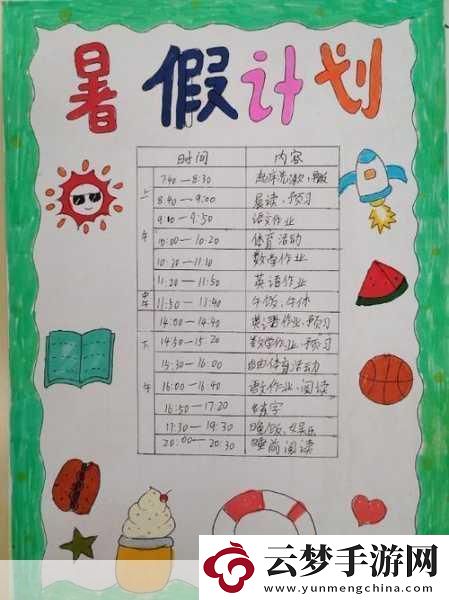 暑假计划
时间 内容
上午
7:40—8:30 起床洗漱、早饭
8:40—9:00 晨读、预习
9:10—9:50 语文作业
10:00—10:20 体育活动
10:30—11:10 数学作业
11:20—11:50 英语作业
中午 11:50—13:40 午饭、午休
下午
14:00—14:40 英语作业、预习
14:50—15:20 数学作业、预习
15:30—16:00 自由体育活动
16:00—16:40 语文作业、阅读
16:50—17:20 练字
17:30—19:30 晚饭、娱乐
20:00—20:30 睡前阅读
云梦手游网
www.yunmengchina.com